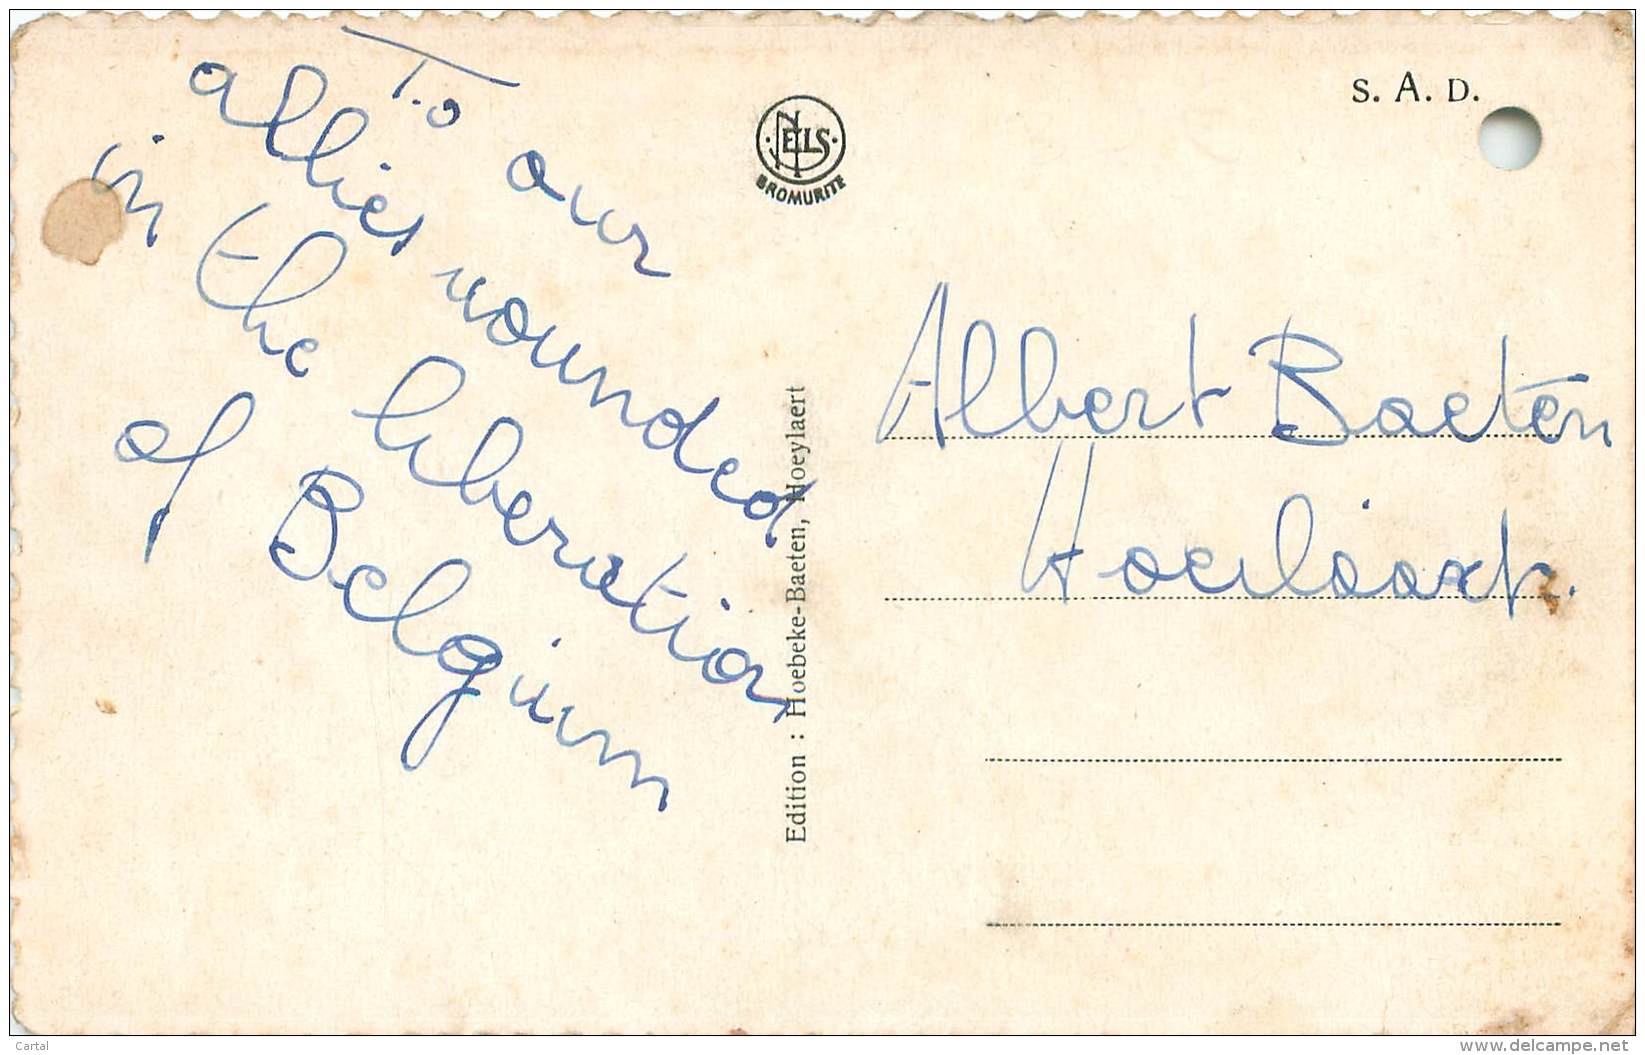 To our
allies wounded
in the liberation
of Belgium
NELS
BROMURITE
Edition : Hoebeke-Baeten, Hoeylaert
S. A. D.
Albert Baeten
Hoeilaart.
Cartal
www.delcampe.net